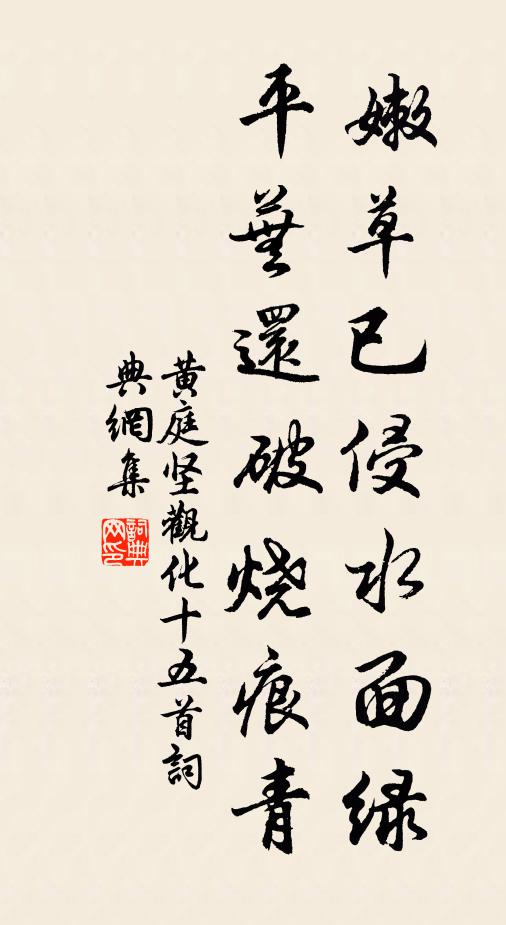 嫩草已侵水面绿
平蕪還破烧痕青
黄庭坚觀化十五首詞
典網集
詞典网印